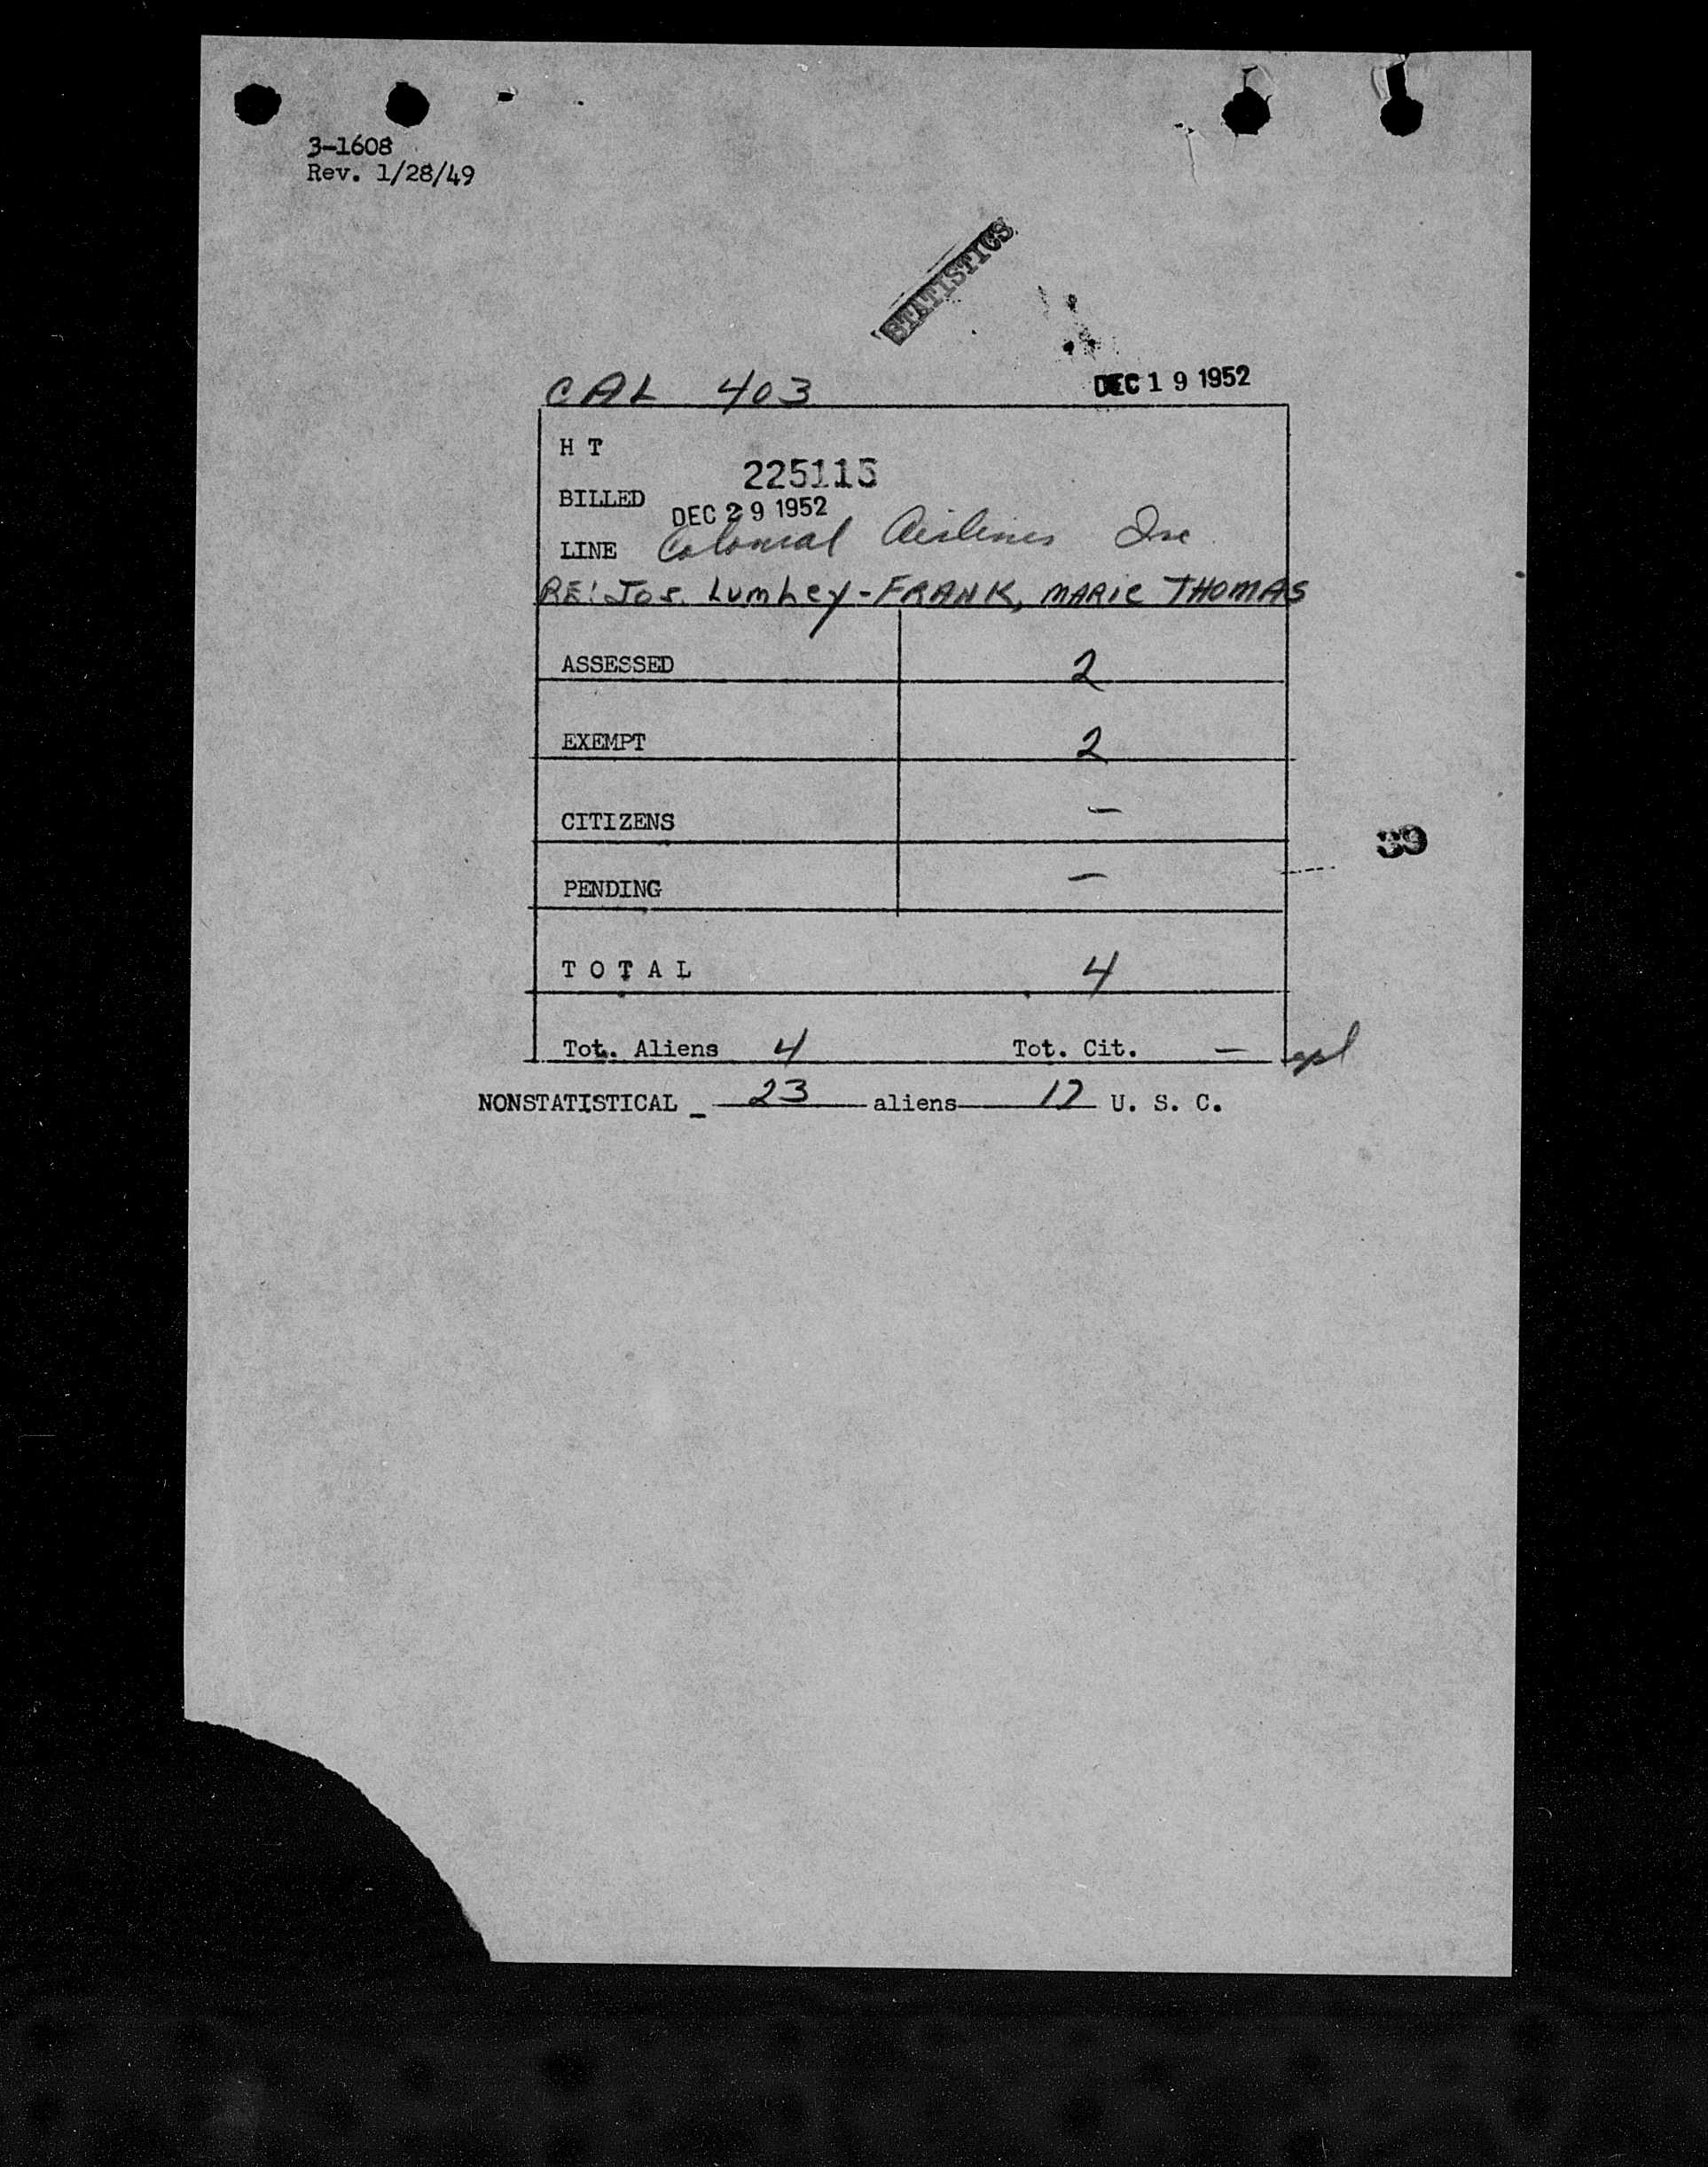 3-1608
Rev. 1/28/49
STATISTICS
CAL 403 DEC 19 1952
H T
225115
BILLED DEC 29 1952
LINE Colonial Airlines Inc
RE: Jos. Lumley-FRANK, MARIE THOMAS
ASSESSED 2
EXEMPT 2
CITIZENS —
39
PENDING —
TOTAL 4
Tot. Aliens 4 Tot. Cit. —
NONSTATISTICAL - 23 aliens 17 U. S. C.